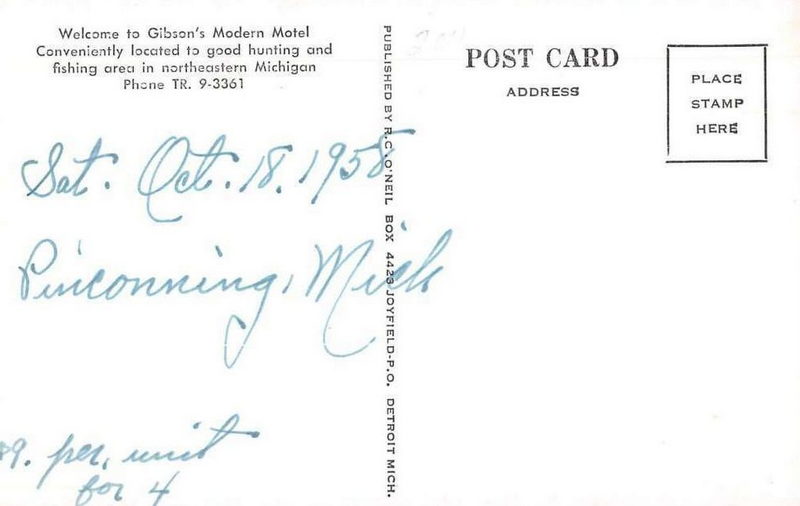 Welcome to Gibson's Modern Motel
Conveniently located to good hunting and
fishing area in northeastern Michigan
Phone TR. 9-3361
Sat. Oct. 18, 1958
Pinconning, Mich
$9. per, unit
for 4
PUBLISHED BY R.C. O'NEIL BOX 4423 JOYFIELD-P.O. DETROIT MICH.
POST CARD
ADDRESS
PLACE
STAMP
HERE